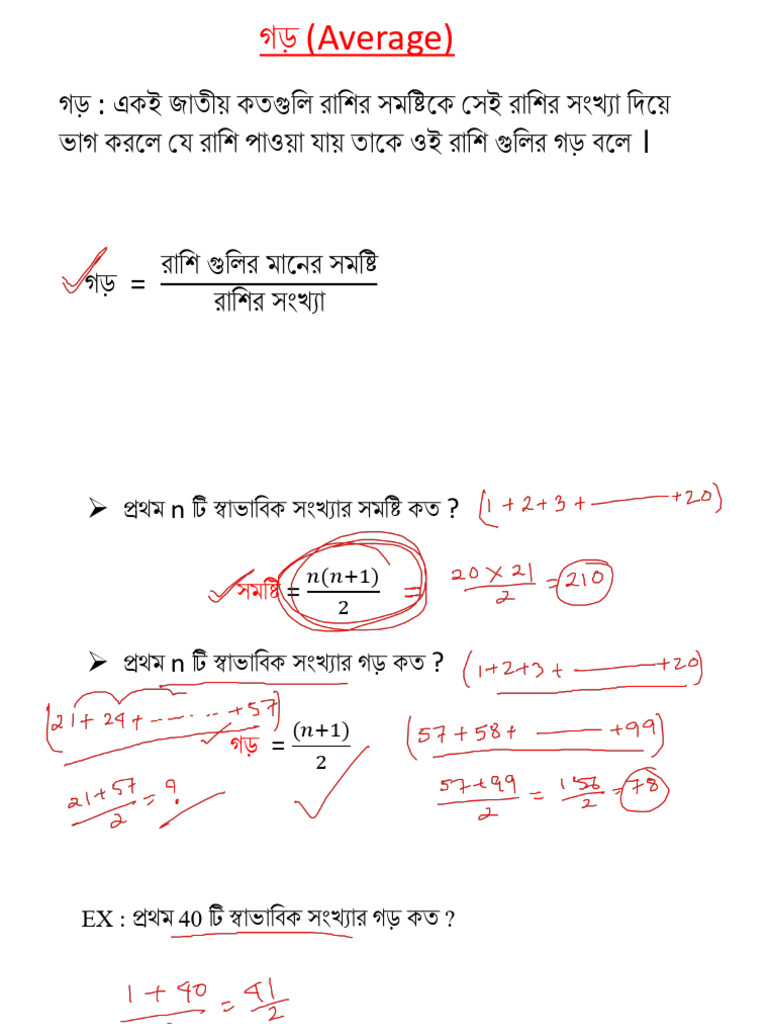 গড় (Average)
গড় : একই জাতীয় কতগুলি রাশির সমষ্টিকে সেই রাশির সংখ্যা দিয়ে
ভাগ করলে যে রাশি পাওয়া যায় তাকে ওই রাশি গুলির গড় বলে |
গড় = রাশি গুলির মানের সমষ্টি / রাশির সংখ্যা
➢ প্রথম n টি স্বাভাবিক সংখ্যার সমষ্টি কত ? (1+2+3+ ——— +20)
সমষ্টি = n(n+1) / 2 = 20 × 21 / 2 = 210
➢ প্রথম n টি স্বাভাবিক সংখ্যার গড় কত ? (1+2+3+ ——— +20)
(21+24+ ---... +57)
গড় = (n+1) / 2
(57+58+ —— +99)
21+57 / 2 = ?
57+99 / 2 = 156 / 2 = 78
EX : প্রথম 40 টি স্বাভাবিক সংখ্যার গড় কত ?
1+40 = 41 / 2